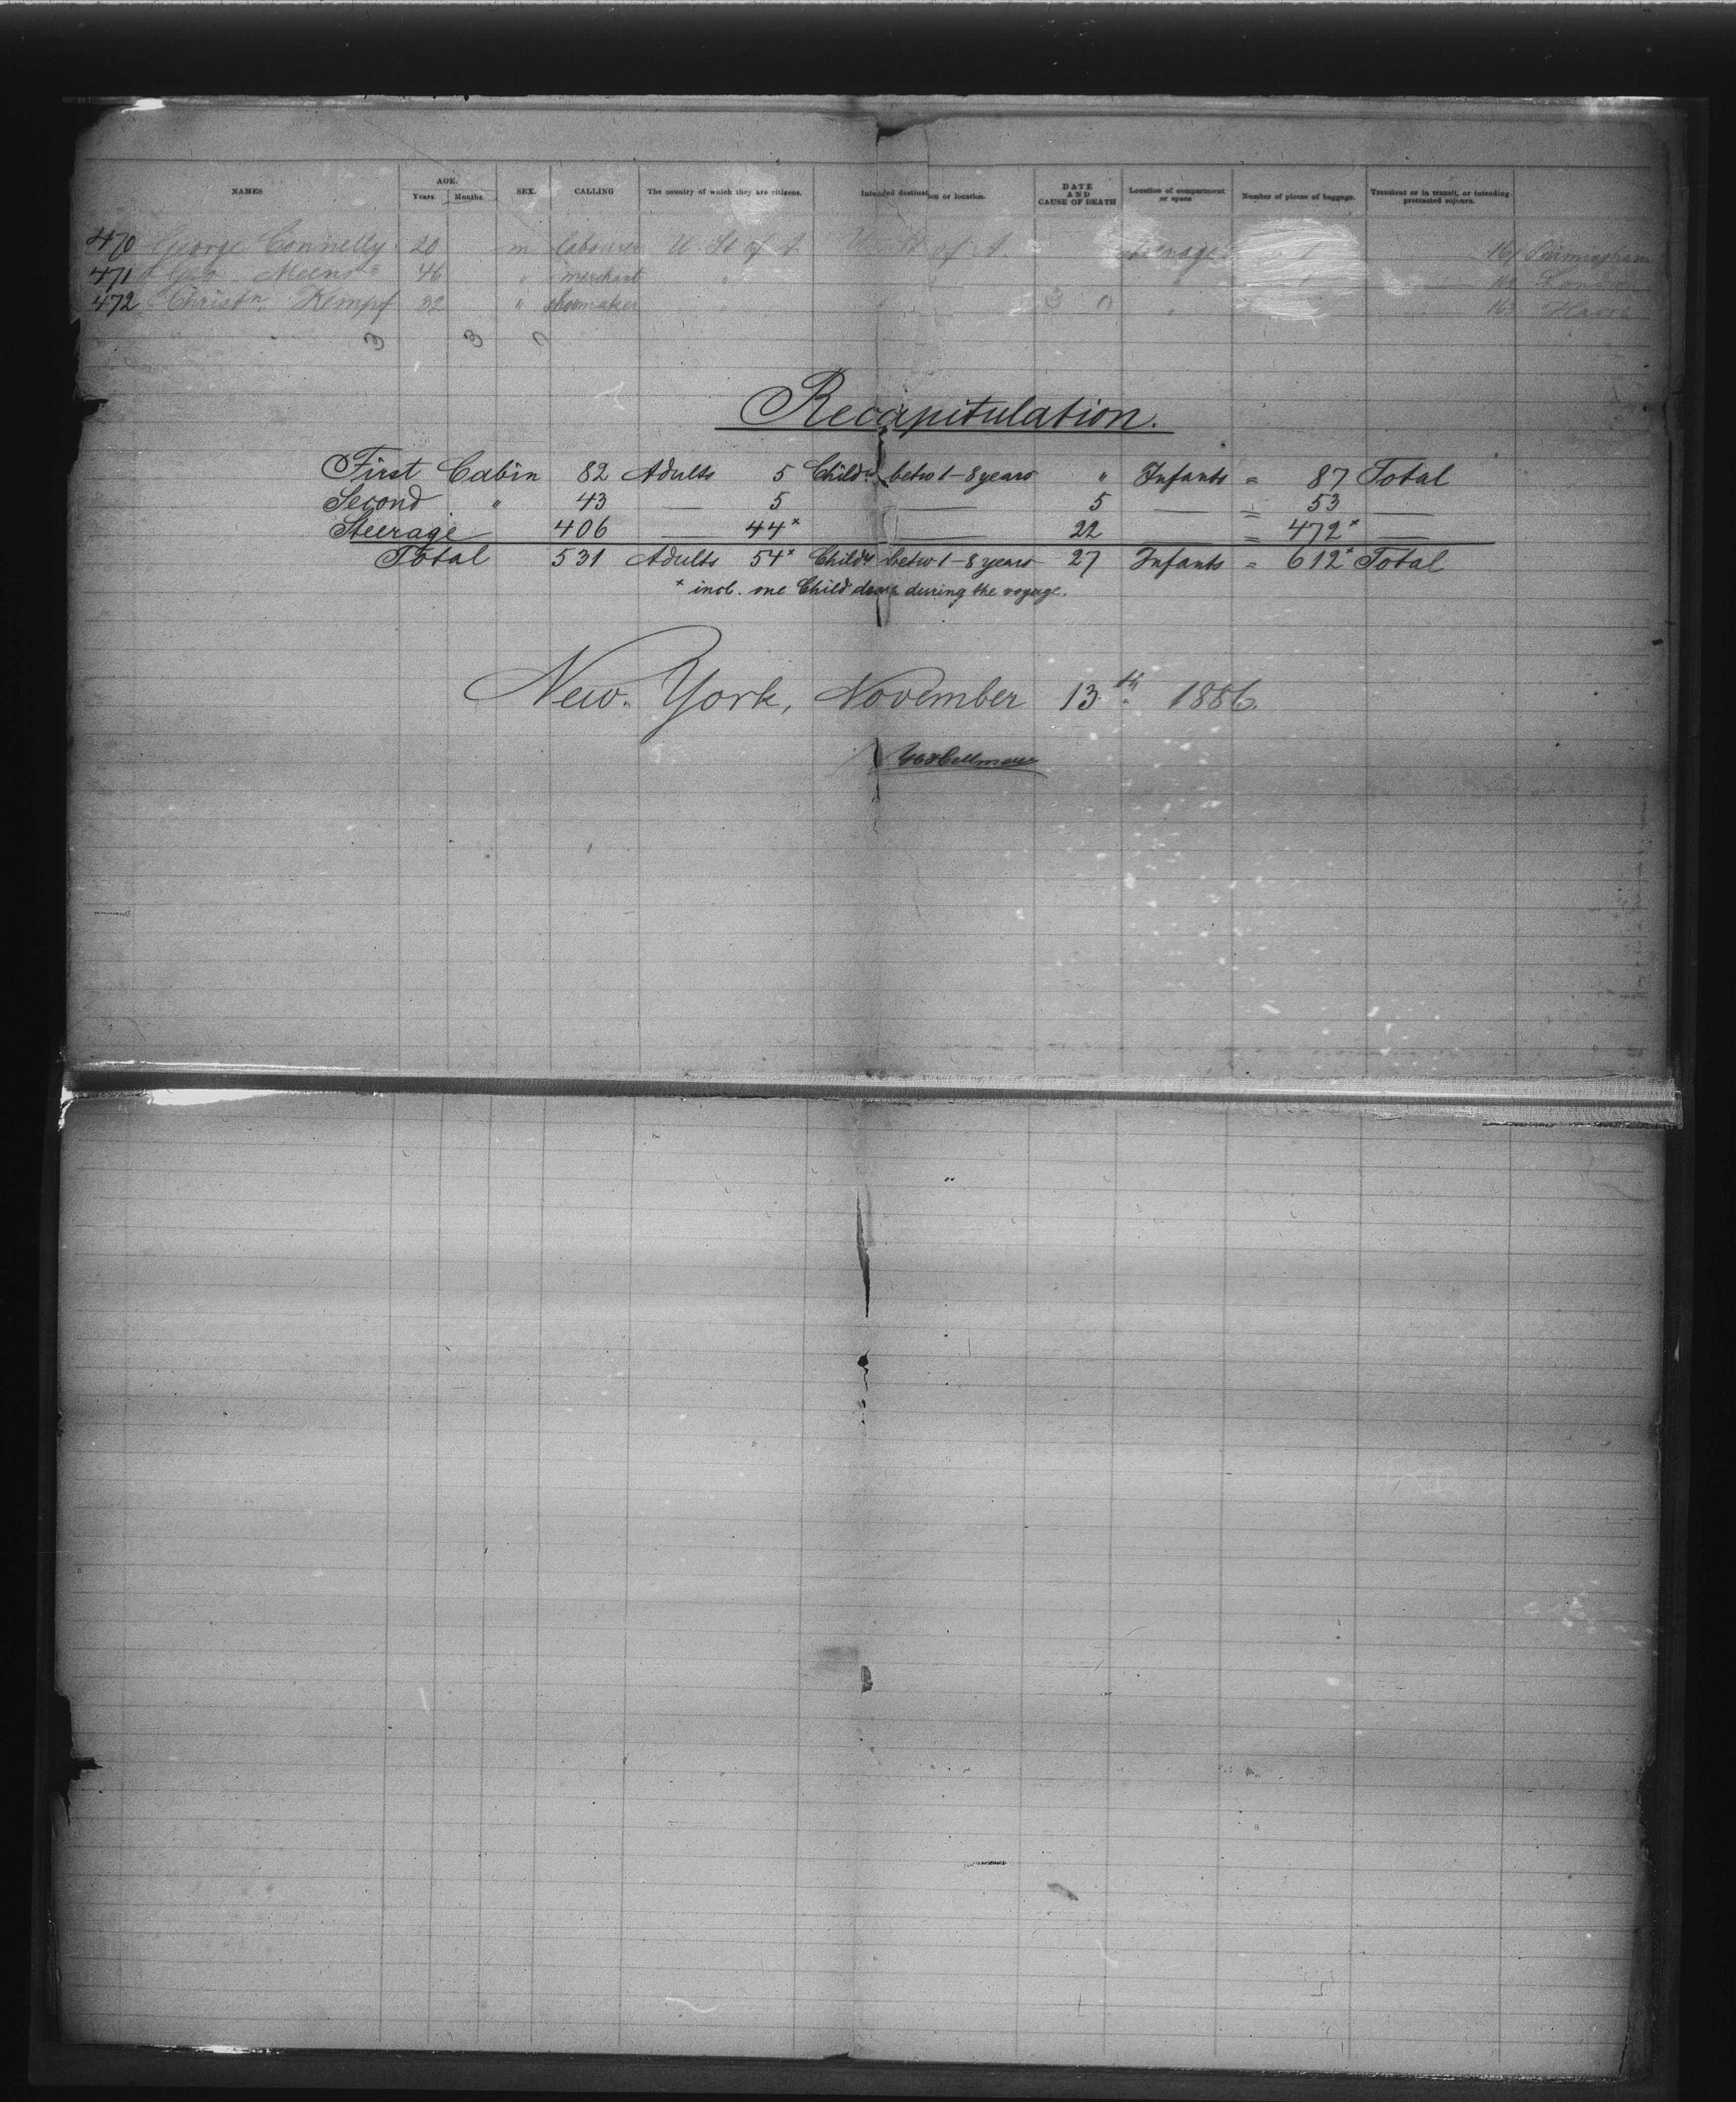 NAMES AGE. Years. Months. SEX. CALLING The country of which they are citizens. Intended destination or location. DATE AND CAUSE OF DEATH Location of compartment or space Number of pieces of baggage. Transient or in transit, or intending protracted sojourn.
470 George Connelly 20 m labourer U. St. of A. U. St. of A. Steerage 1 161 Birmingham
471 Meens 46 " merchant " " " London
472 Christn. Kempf 32 " shoemaker " " " 163 Havre
3 3 0
Recapitulation.
First Cabin 82 Adults 5 Childn betw 1-8 years " Infants = 87 Total
Second " 43 — 5 — 5 — = 53 —
Steerage 406 — 44* — 22 — = 472* —
Total 531 Adults 54* Childn betw 1-8 years 27 Infants = 612* Total
* incl. one Child during the voyage.
New-York, November 13th 1886.